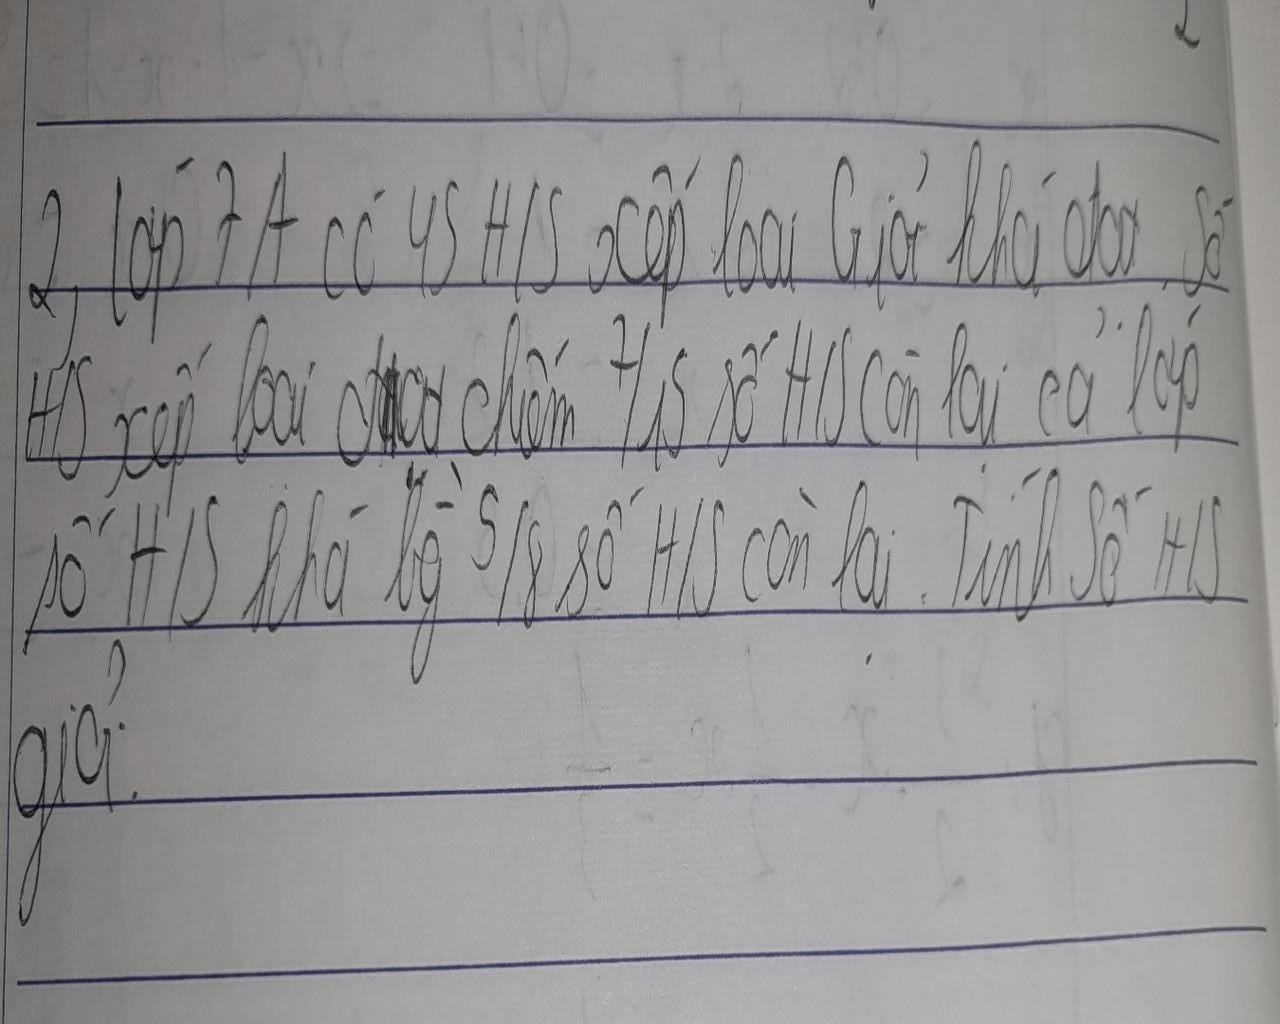 2, lớp 7A có 45 H/S xếp loại Giỏi khá đạt Số
H/S xếp loại đạt chiếm 7/15 số H/S còn lại cả lớp
số H/S khá bằng 5/8 số H/S còn lại. Tính Số H/S
giỏi.